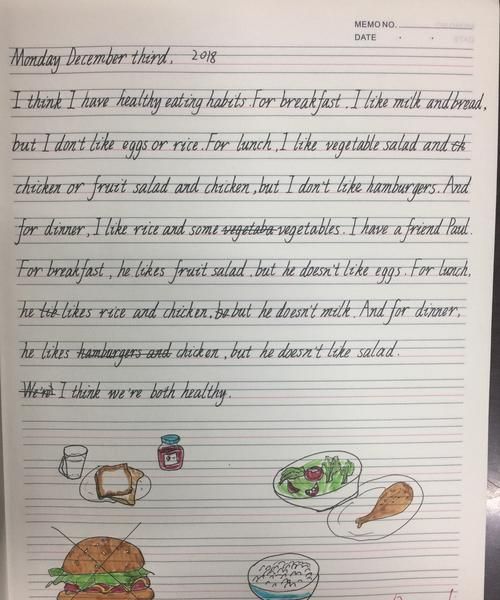 MEMO NO.
DATE
Monday December third, 2018
I think I have healthy eating habits. For breakfast, I like milk and bread,
but I don't like eggs or rice. For lunch, I like vegetable salad and
chicken or fruit salad and chicken, but I don't like hamburgers. And
for dinner, I like rice and some vegetaba vegetables. I have a friend Paul.
For breakfast, he likes fruit salad, but he doesn't like eggs. For lunch,
he likes rice and chicken, but he doesn't milk. And for dinner,
he likes hamburgers and chicken, but he doesn't like salad.
I think we're both healthy.